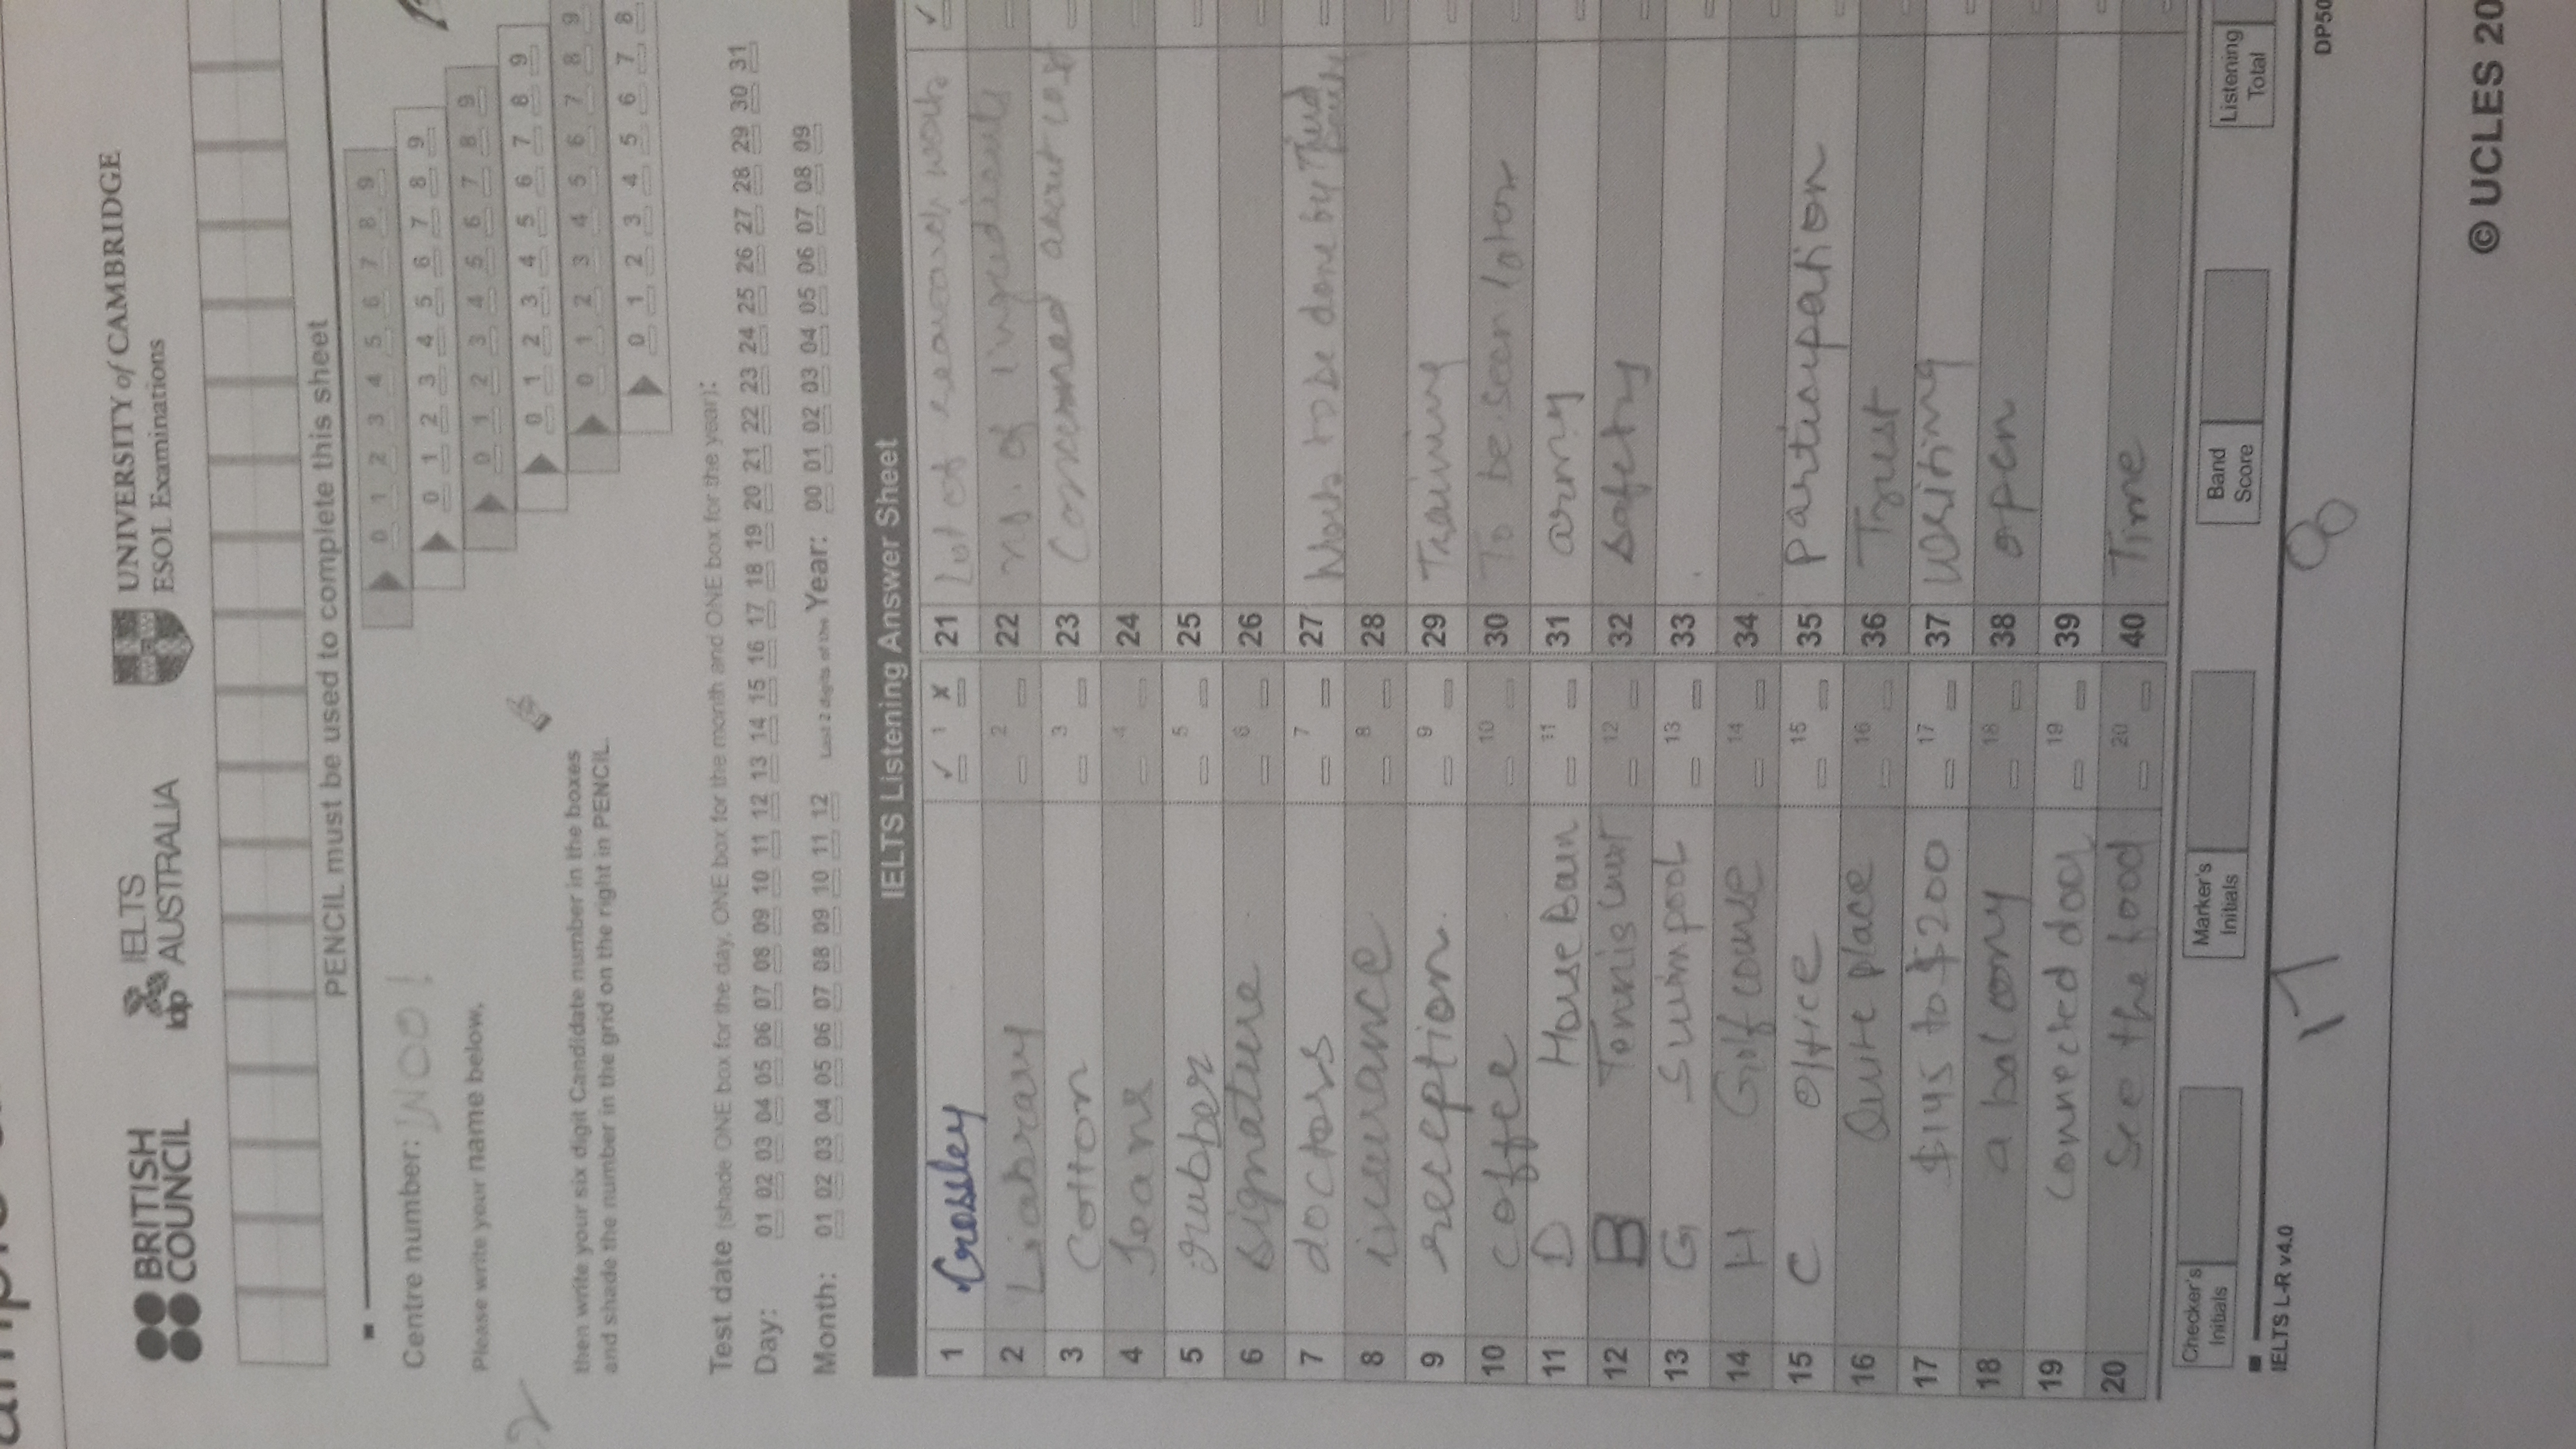 BRITISH COUNCIL
idp IELTS AUSTRALIA
UNIVERSITY of CAMBRIDGE
ESOL Examinations
PENCIL must be used to complete this sheet
Centre number:
Please write your name below,
then write your six digit Candidate number in the boxes
and shade the number in the grid on the right in PENCIL.
0 1 2 3 4 5 6 7 8 9
0 1 2 3 4 5 6 7 8 9
0 1 2 3 4 5 6 7 8 9
0 1 2 3 4 5 6 7 8 9
0 1 2 3 4 5 6 7 8 9
0 1 2 3 4 5 6 7 8
Test date (shade ONE box for the day, ONE box for the month and ONE box for the year):
Day: 01 02 03 04 05 06 07 08 09 10 11 12 13 14 15 16 17 18 19 20 21 22 23 24 25 26 27 28 29 30 31
Month: 01 02 03 04 05 06 07 08 09 10 11 12 Last 2 digits of the Year: 00 01 02 03 04 05 06 07 08 09
IELTS Listening Answer Sheet
1 Crosley ✓ 1 x
2 Liabrary 2
3 Cotton 3
4 Jeans 4
5 rubber 5
6 signature 6
7 doctors 7
8 insurance 8
9 reception 9
10 coffee 10
11 D Horse Barn 11
12 B Tennis Court 12
13 G Swimpool 13
14 H Golf course 14
15 C office 15
16 Quite place 16
17 $145 to $200 17
18 a balcony 18
19 connected door 19
20 See the food 20
21 Lot of research work ✓
22 no. of ingredients
23 Concerned about cost
24
25
26
27 Work to be done by Third
28
29 Training
30 To be seen later
31 army
32 safety
33
34
35 participation
36 Trust
37 writing
38 open
39
40 Time
Checker's Initials
Marker's Initials
Band Score
Listening Total
IELTS L-R v4.0
DP50
17
8
© UCLES 20